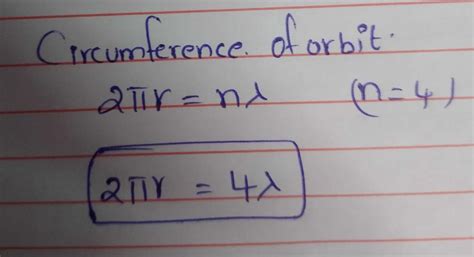 Circumference. of orbit.
2πr = nλ (n=4)
2πr = 4λ